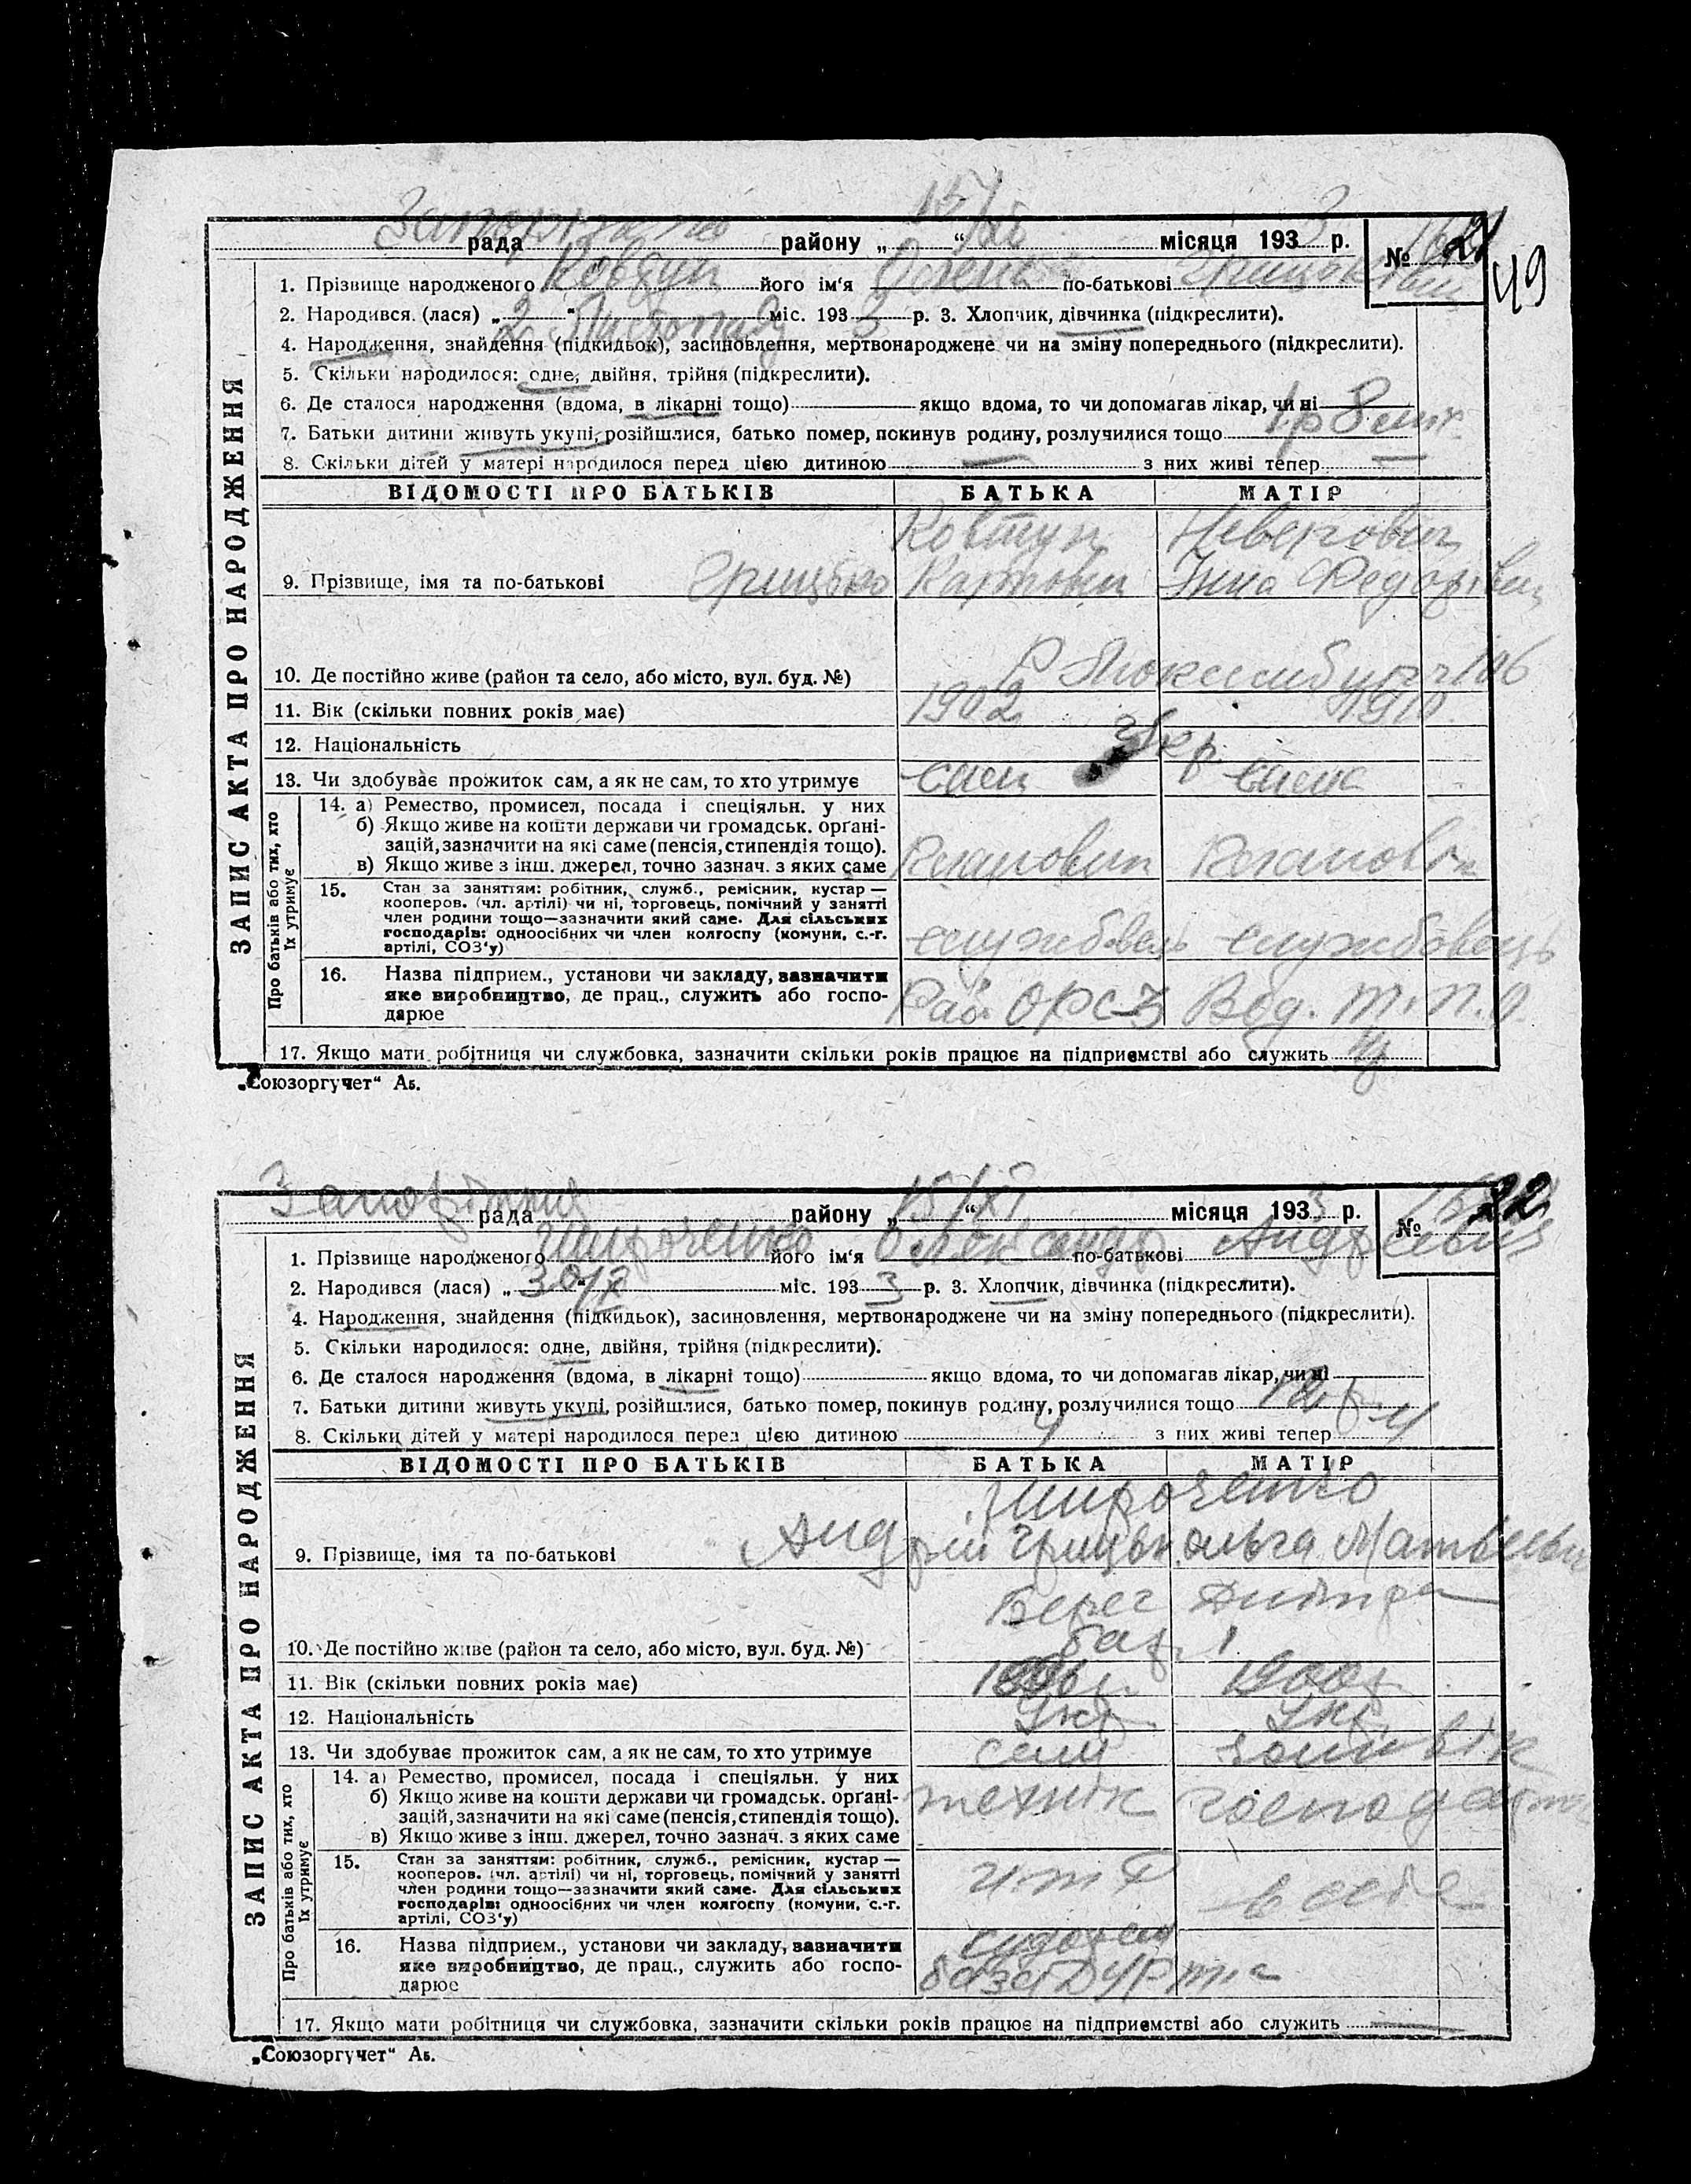 49
рада району „ “ місяця 1933 р. № 21
15/XI
1. Прізвище народженого Ковтун його ім'я Олена по-батькові
2. Народився (лася) „2“ Листопаду міс. 1933 р. 3. Хлопчик, дівчинка (підкреслити).
4. Народження, знайдення (підкидьок), засиновлення, мертвонароджене чи на зміну попереднього (підкреслити).
5. Скільки народилося: одне, двійня, трійня (підкреслити).
6. Де сталося народження (вдома, в лікарні тощо) якщо вдома, то чи допомагав лікар, чи ні
7. Батьки дитини живуть укупі, розійшлися, батько помер, покинув родину, розлучилися тощо 1 р 8 міс
8. Скільки дітей у матері народилося перед цією дитиною — з них живі тепер —
ЗАПИС АКТА ПРО НАРОДЖЕННЯ
ВІДОМОСТІ ПРО БАТЬКІВ БАТЬКА МАТІР
Ковтун Неверович
9. Прізвище, імя та по-батькові Грицько Карпович Інна Федорівна
10. Де постійно живе (район та село, або місто, вул. буд. №) Р. Люксембург 106
11. Вік (скільки повних років має) 1902 1910
12. Національність Укр.
13. Чи здобуває прожиток сам, а як не сам, то хто утримує сам сама
Про батьків або тих, хто їх утримує
14. а) Ремество, промисел, посада і спеціяльн. у них
б) Якщо живе на кошти держави чи громадськ. орґані-
зацій, зазначити на які саме (пенсія, стипендія тощо).
в) Якщо живе з інш. джерел, точно зазнач. з яких саме
15. Стан за заняттям: робітник, служб., ремісник, кустар —
кооперов. (чл. артілі) чи ні, торговець, помічний у занятті
член родини тощо—зазначити який саме. Для сільських
господарів: одноосібних чи член колгоспу (комуни, с.-г.
артілі, СОЗ'у) службовець службовець
16. Назва підприєм., установи чи закладу, зазначити
яке виробництво, де прац., служить або госпо-
дарює Рай ОРС-3 Вод. Т.П.О.
17. Якщо мати робітниця чи службовка, зазначити скільки років працює на підприємстві або служить
„Союзоргучет“ Аб.
рада району „15/XI“ місяця 1933 р. № 22
1. Прізвище народженого Широченко його ім'я Олександр по-батькові Андрієвич
2. Народився (лася) „30/X міс. 1933 р. 3. Хлопчик, дівчинка (підкреслити).
4. Народження, знайдення (підкидьок), засиновлення, мертвонароджене чи на зміну попереднього (підкреслити).
5. Скільки народилося: одне, двійня, трійня (підкреслити).
6. Де сталося народження (вдома, в лікарні тощо) якщо вдома, то чи допомагав лікар, чи ні
7. Батьки дитини живуть укупі, розійшлися, батько помер, покинув родину, розлучилися тощо
8. Скільки дітей у матері народилося перед цією дитиною 4 з них живі тепер 4
ЗАПИС АКТА ПРО НАРОДЖЕННЯ
ВІДОМОСТІ ПРО БАТЬКІВ БАТЬКА МАТІР
Широченко
9. Прізвище, імя та по-батькові Андрій Грицьк. Ольга Матвієвн
Берег Дніпра
10. Де постійно живе (район та село, або місто, вул. буд. №) бар. 1
11. Вік (скільки повних років має) 1900р
12. Національність Укр Укр
13. Чи здобуває прожиток сам, а як не сам, то хто утримує сам чоловік
Про батьків або тих, хто їх утримує
14. а) Ремество, промисел, посада і спеціяльн. у них
б) Якщо живе на кошти держави чи громадськ. орґані-
зацій, зазначити на які саме (пенсія, стипендія тощо).
в) Якщо живе з інш. джерел, точно зазнач. з яких саме
технік господарт
15. Стан за заняттям: робітник, служб., ремісник, кустар —
кооперов. (чл. артілі) чи ні, торговець, помічний у занятті
член родини тощо—зазначити який саме. Для сільських
господарів: одноосібних чи член колгоспу (комуни, с.-г.
артілі, СОЗ'у)
и т Р в себе
16. Назва підприєм., установи чи закладу, зазначити
яке виробництво, де прац., служить або госпо-
дарює
17. Якщо мати робітниця чи службовка, зазначити скільки років працює на підприємстві або служить —
„Союзоргучет“ Аб.